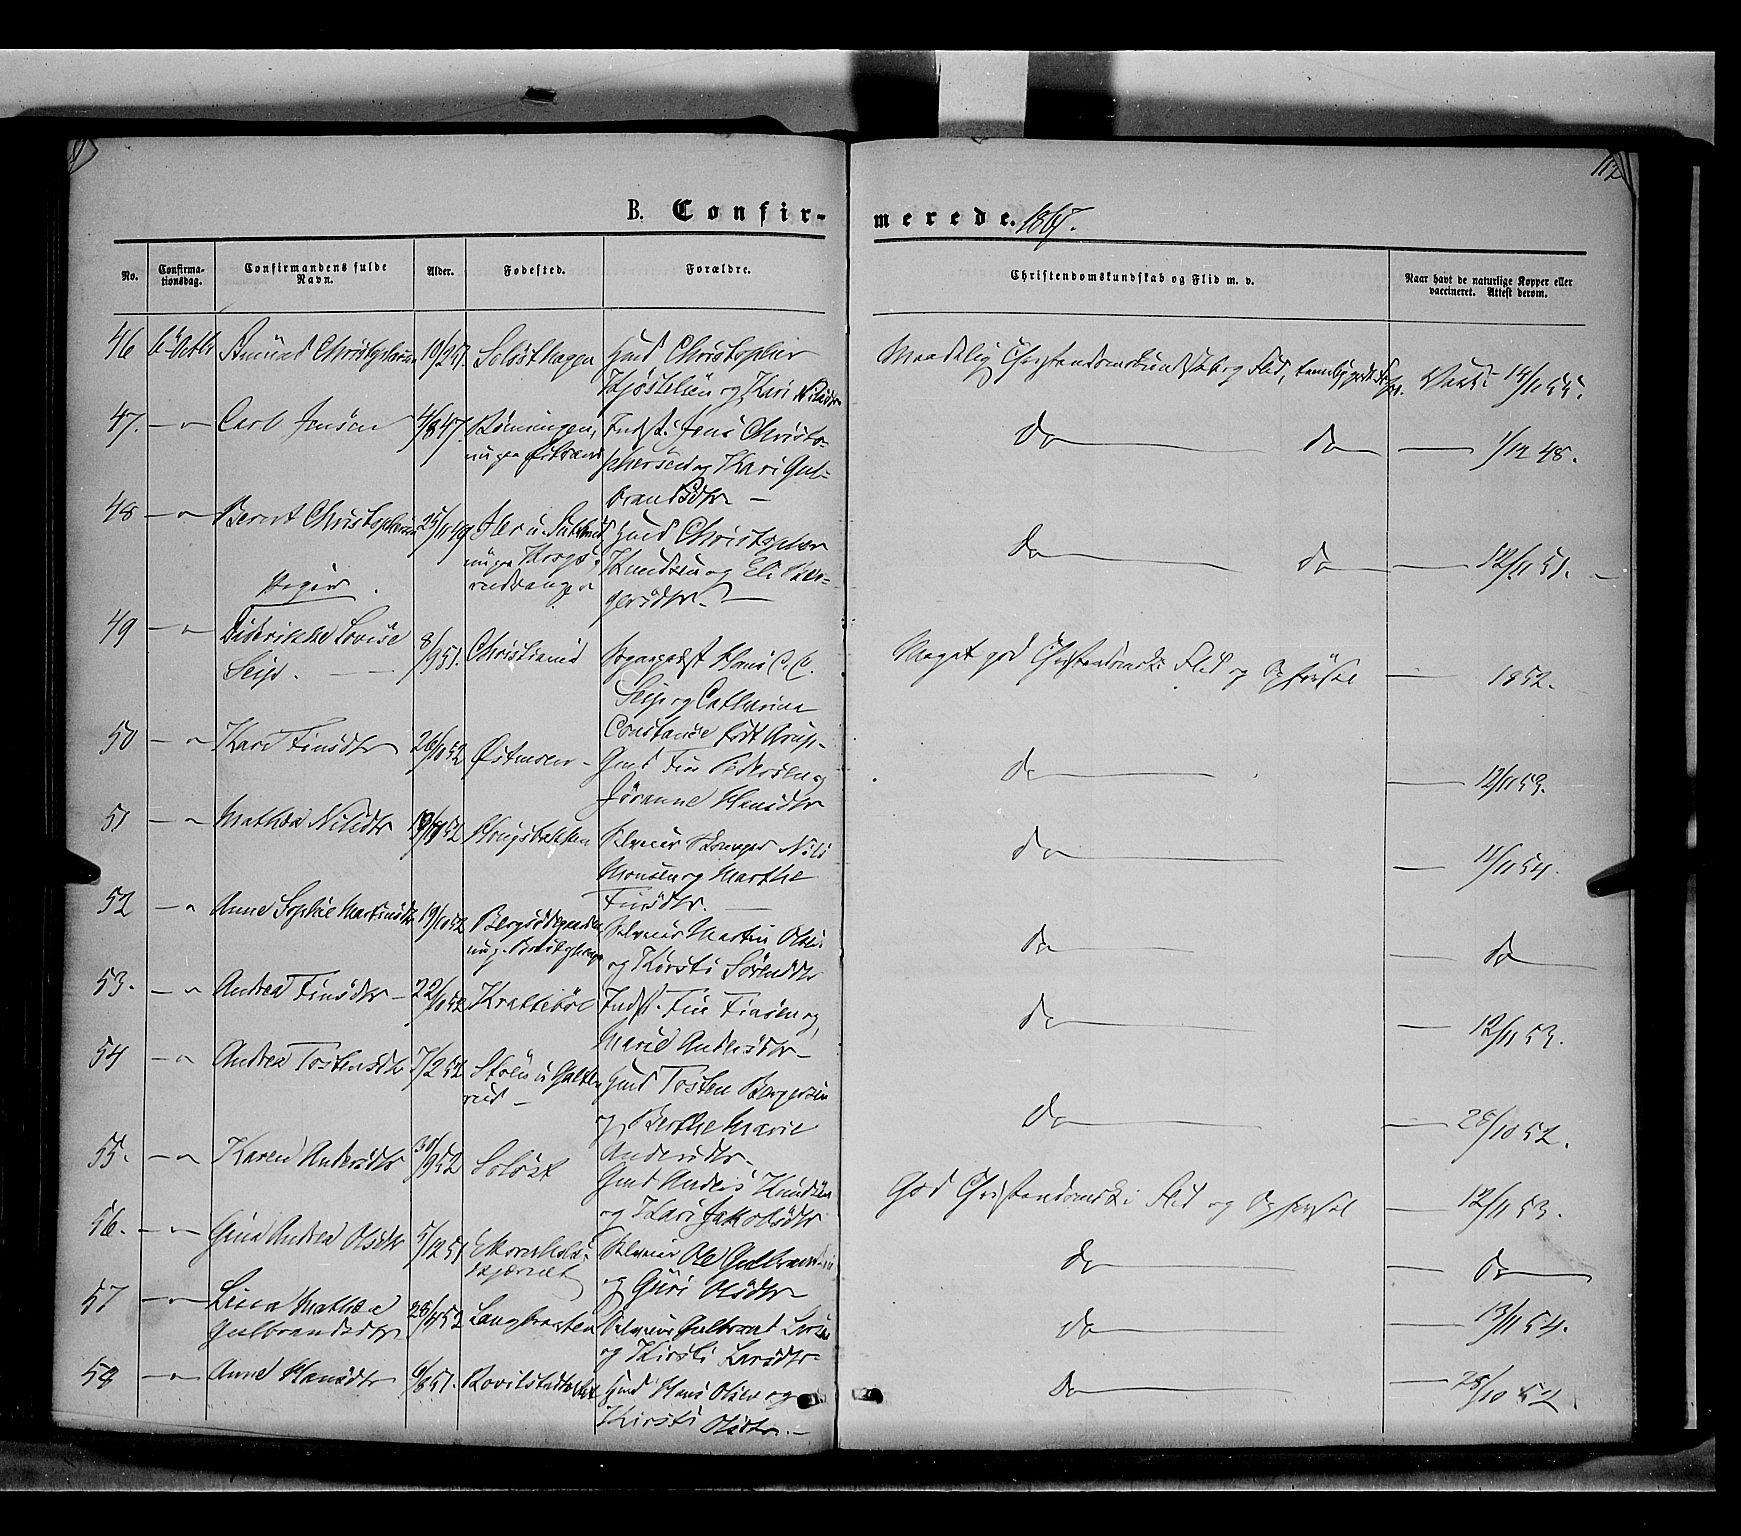 112
B. Confir-
merede. 1867.
No.
Confirma-
tionsdag.
Confirmandens fulde
Navn.
Alder.
Fødested.
Forældre.
Christendomskundskab og Flid m. v.
Naar havt de naturlige Kopper eller
vaccineret. Attest derom.
46 6te Octbr Amund Christophersen 10/2 51. Soløsthagen Gmd Christopher
og Kari Nilsdtr
Maadelig Christendomskundskab og Flid, temmelig god Vacc: 14/11 55.
47. — " Carl Jensen 4/8 47. Indst. Jens Christo-
phersen og Kari Gul-
brandsdtr —
do do — 1/12 48.
48 — " Bernt Christophersen 25/11 49 Gmd Christopher
Knudsen og Eli Bør-
gersdtr. —
do do — 12/11 51. —
Piger.
49 — " Diderikke Lovise
Seip. — 8/9 51. Christiania Sogneprest Hans C. C.
Seip og Catharina
Constanse født Arup-
Meget god Christendomsk: Flid og Opførsel — 1852.
50 — " Kari Finsdtr 26/10 52 Østmoen - Gmd Fin Pedersen og
Jøranne Hansdtr
do — 12/11 53.
51 — " Mathea Nilsdtr 52 Kongsbakken Nils
Monsen og Marthe
Finsdtr. —
do — 11/11 54.
52 — " Anne Sophie Martinsdtr 19/10 52 Martin Olsen
og Kirsti Sørensdtr
do — do
53. — " Andrea Finsdtr - 22/10 52 Krattebøl Indst. Fin Finsen og
Marie Andersdtr-
do — 12/11 53.
54 — " Andrea Tostensdtr 7/2 52 Stuen u Galte
rud - Gmd Tosten Børgersen
og Berthe Marie
Andersdtr-
do — 28/10 52.
55. — " Karen Andersdtr 30/9 52 Soløst Gmd Anders Knudsen
og Kari Jakobsdtr
God Christendomsk: Flid og Opførsel — 12/11 53.
56. — " Gina Andrea Olsdtr 5/12 51 Ole Gulbrandsen
og Guri Olsdtr —
do — do
57 — " Lissa Mathea
Gulbrandsdtr 52 Langbraaten Gulbrand Larsen
og Kirsti Larsdtr-
do — 13/11 54.
58 — " Anne Hansdtr 6/8 51. Gmd Hans Olsen og
Kirsti Olsdtr. —
do — 28/10 52.